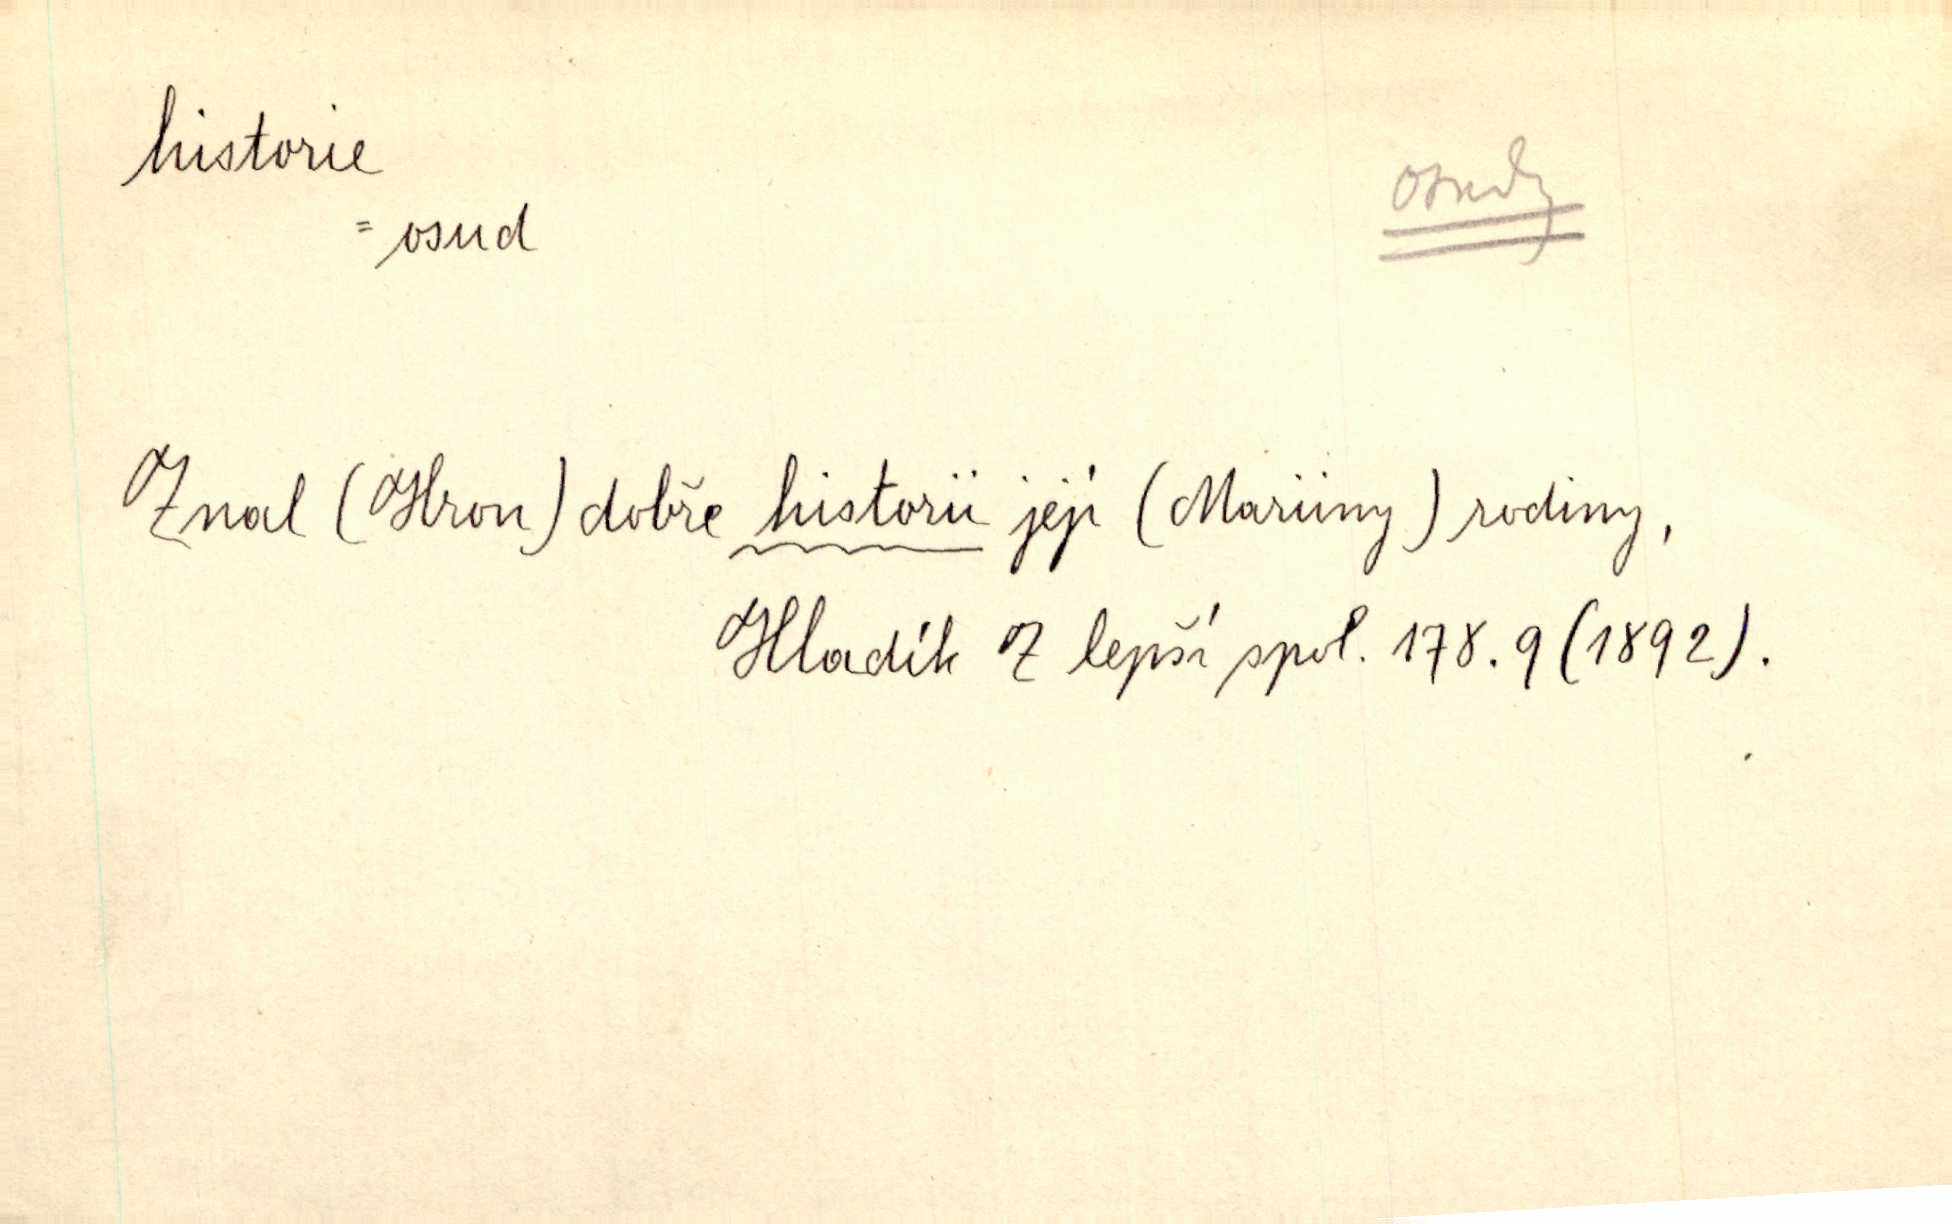 historie
osudy
= osud
Znal (Hron) dobře historii její (Mariiny) rodiny,
Hladík Z lepší spol. 178. 9 (1892).